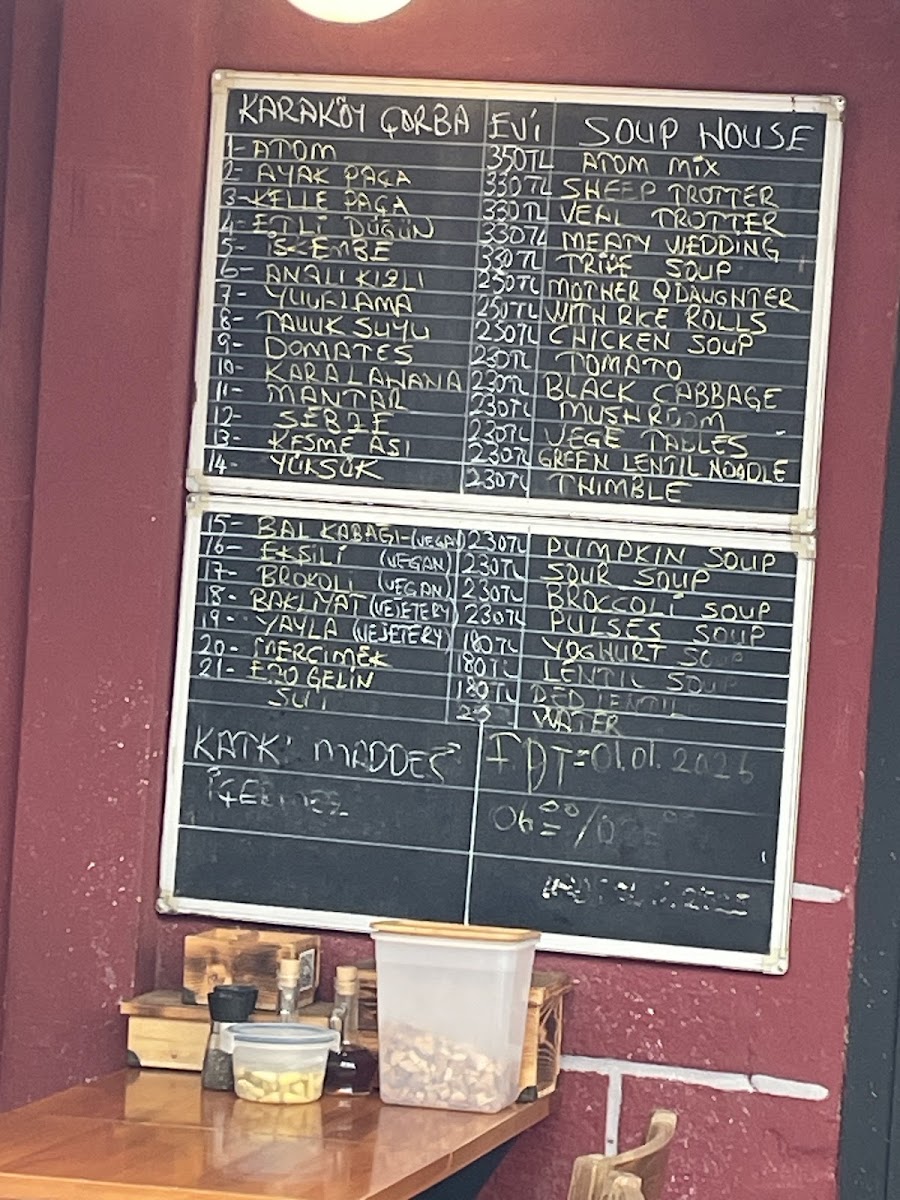 KARAKÖY ÇORBA EVİ SOUP HOUSE
1- ATOM 350TL ATOM MİX
2- AYAK PAÇA 330TL SHEEP TROTTER
3- KELLE PAÇA 330TL VEAL TROTTER
4- ETLİ DÜĞÜN 330TL MEATY WEDDING
5- İŞKEMBE 330TL TRİPE SOUP
6- ANALI KIZLI 250TL MOTHER DAUGHTER
7- YUVELAMA 250TL WITH RICE ROLLS
8- TAVUK SUYU 250TL CHICKEN SOUP
9- DOMATES 230TL TOMATO
10- KARALAHANA 230TL BLACK CABBAGE
11- MANTAR 230TL MUSHROOM
12- SEBZE 230TL VEGE TABLES
13- KESME AŞI 230TL GREEN LENTIL NOODLE
14- YÜKSÜK 230TL THIMBLE
15- BAL KABAĞI-(VEGAN) 230TL PUMPKIN SOUP
16- EKŞİLİ (VEGAN) 230TL SOUR SOUP
17- BROKOLİ (VEGAN) 230TL BROCCOLİ SOUP
18- BAKLİYAT (VEJETERY) 230TL PULSES SOUP
19- YAYLA (VEJETERY) 180TL YOGHURT SOUP
20- MERCİMEK 180TL LENTIL SOUP
21- EZO GELİN 180TL RED LENTIL
SU 25 WATER
KATKI MADDESİ FDT=01.01.2026
İÇERMEZ 06=00/